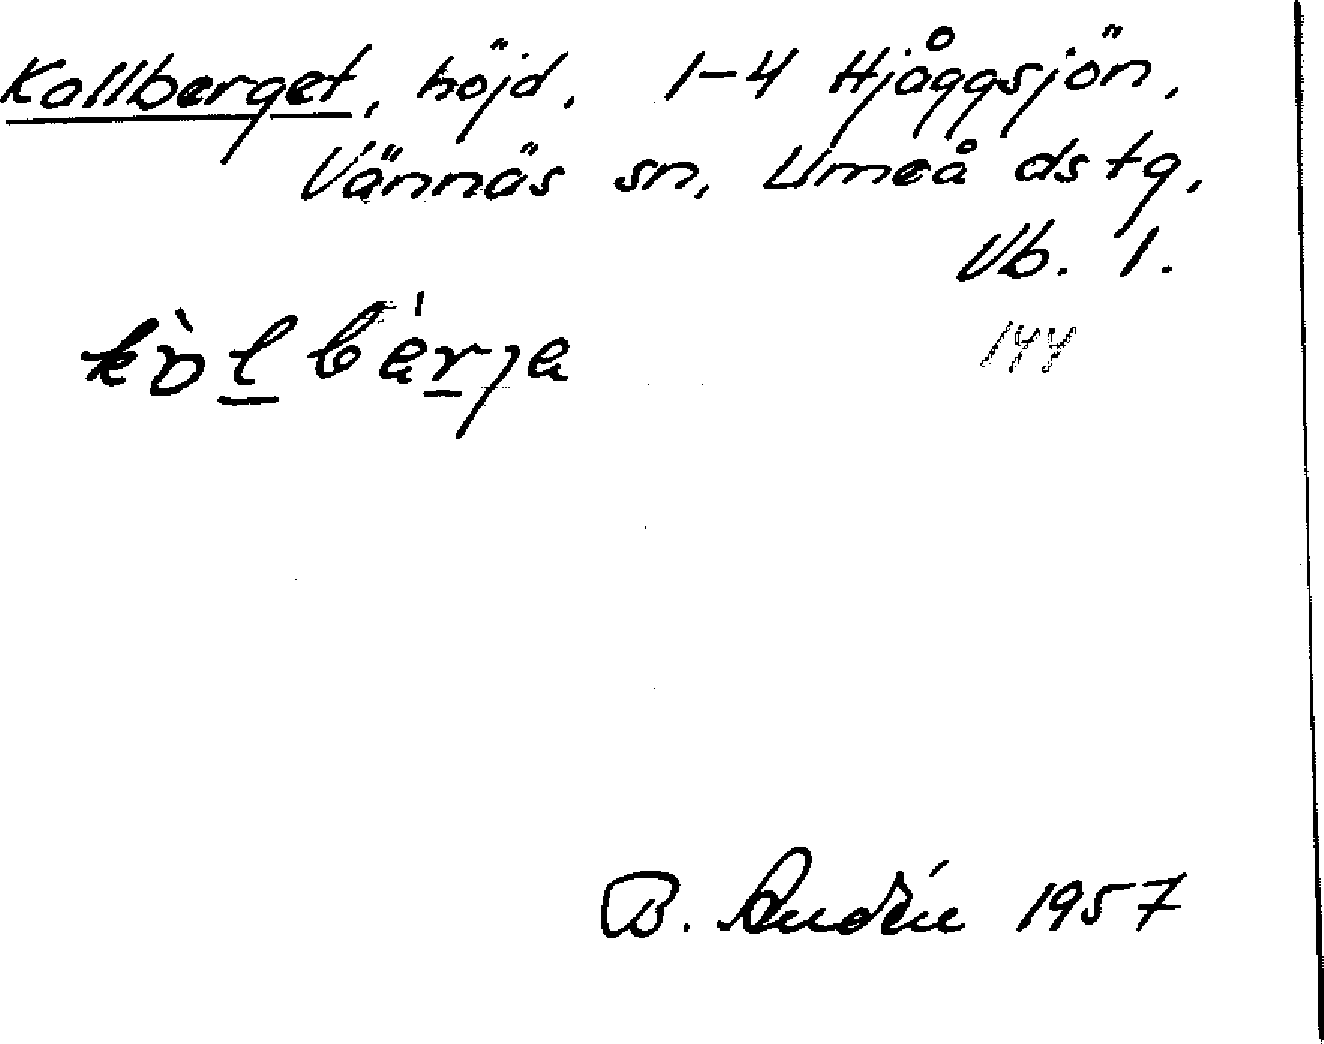 Kallberget, höjd. 1-4 Hjåggsjön,
Vännäs sn, Umeå dstg,
Vb. 1.
kòl bérja
144
B. Andrén 1957